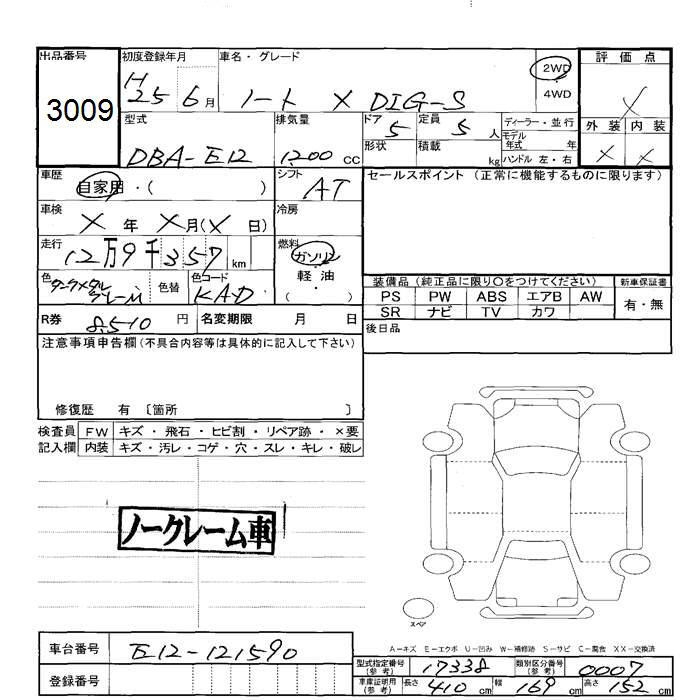 出品番号
3009
初度登録年月
H25 6月
車名・グレード
ノート X DIG-S
2WD
4WD
評価点
X
外装 内装
X X
型式
DBA-E12
排気量
1200 cc
ドア 5
定員 5 人
形状
積載 kg
ディーラー・並行
モデル年式 年
ハンドル 左・右
車歴
自家用・( )
シフト
AT
セールスポイント (正常に機能するものに限ります)
車検
X 年 X月(X 日)
冷房
走行
12万9千357 km
燃料
ガソリン
軽・油
( )
色
ダークメタルグレーM
色替
色コード
KAD
装備品 (純正品に限り〇をつけてください)
新車保証書
PS PW ABS エアB AW
SR ナビ TV カワ
有・無
R券 8,510 円
名変期限 月 日
後日品
注意事項申告欄(不具合内容等は具体的に記入して下さい)
修復歴 有 〔箇所 〕
検査員記入欄
FW キズ・飛石・ヒビ割・リペア跡・×要
内装 キズ・汚レ・コゲ・穴・スレ・キレ・破レ
ノークレーム車
スペア
A-キズ E-エクボ U-凹み W-補修跡 S-サビ C-腐食 XX-交換済
車台番号
E12-121590
登録番号
型式指定番号(参考) 17338
類別区分番号(参考) 0007
車庫証明用(参考) 長さ 410 cm 幅 169 cm 高さ 152 cm